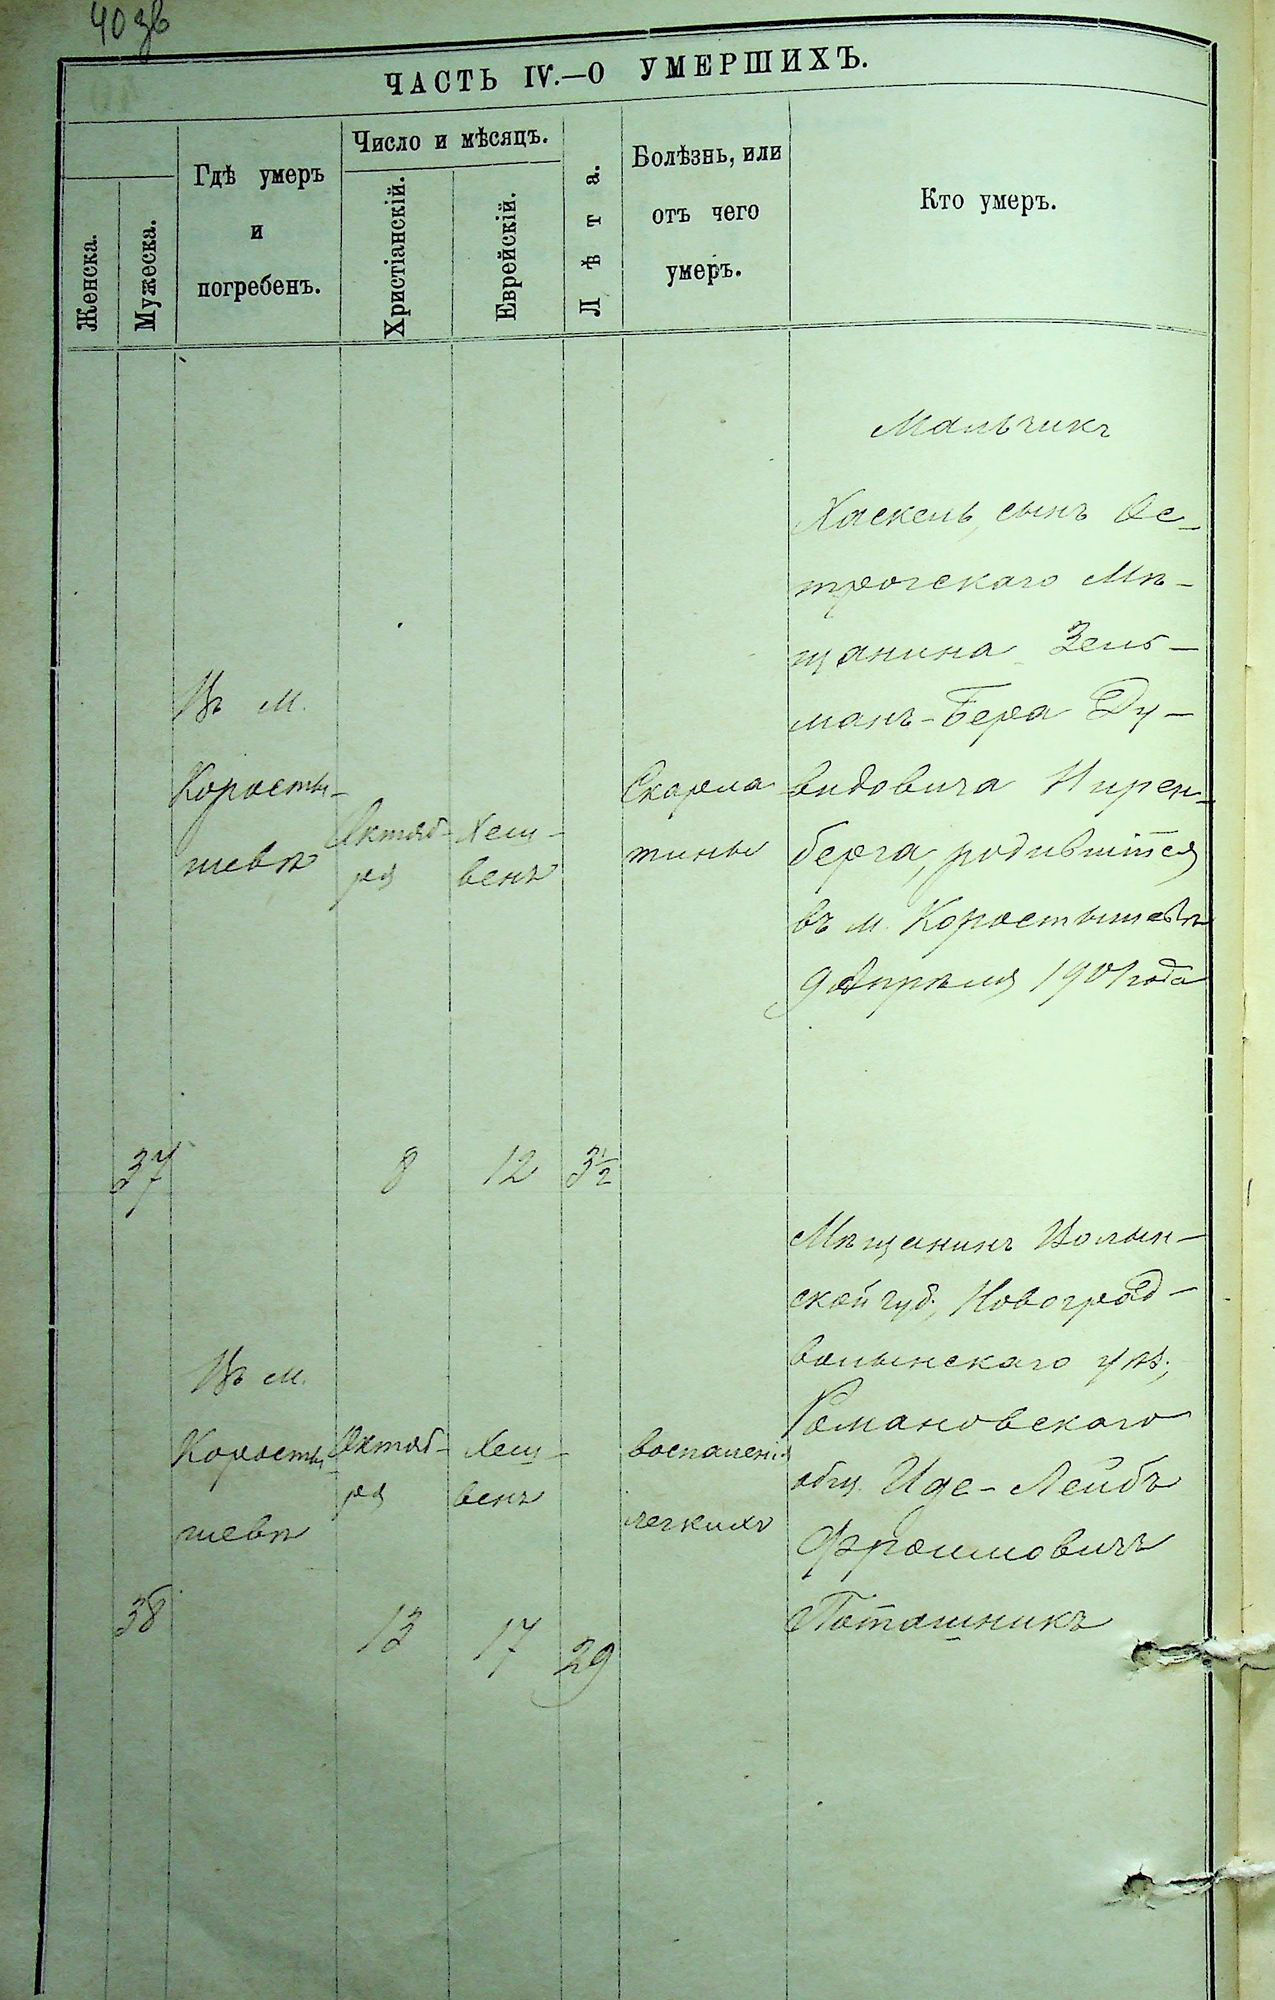 40 зв
ЧАСТЬ IV.—О УМЕРШИХЪ.
Женска.
Мужеска.
Гдѣ умеръ
и
погребенъ.
Число и мѣсяцъ.
Христіанскій.
Еврейскій.
Лѣта.
Болѣзнь, или
отъ чего
умеръ.
Кто умеръ.
37
Въ м.
Коросты-
шевѣ
Октяб-
ря
8
Хеш-
венъ
12
3½
Скарла
тины
Мальчикъ
Хаскель, сынъ Ос-
трогскаго Мѣ-
щанина Зель-
манъ-Бера Ду-
видовича Нирен-
берга, родившійся
въ м. Коростышевѣ
9 Апрѣля 1901 года
38
Въ м.
Коросты-
шевѣ
Октяб-
ря
13
Хеш-
венъ
17
29
воспаленія
легкихъ
Мѣщанинъ Волын-
ской губ., Новоград-
волынскаго уѣз.,
Романовскаго
общ. Иде-Лейбъ
Фроимовичъ
Поташникъ